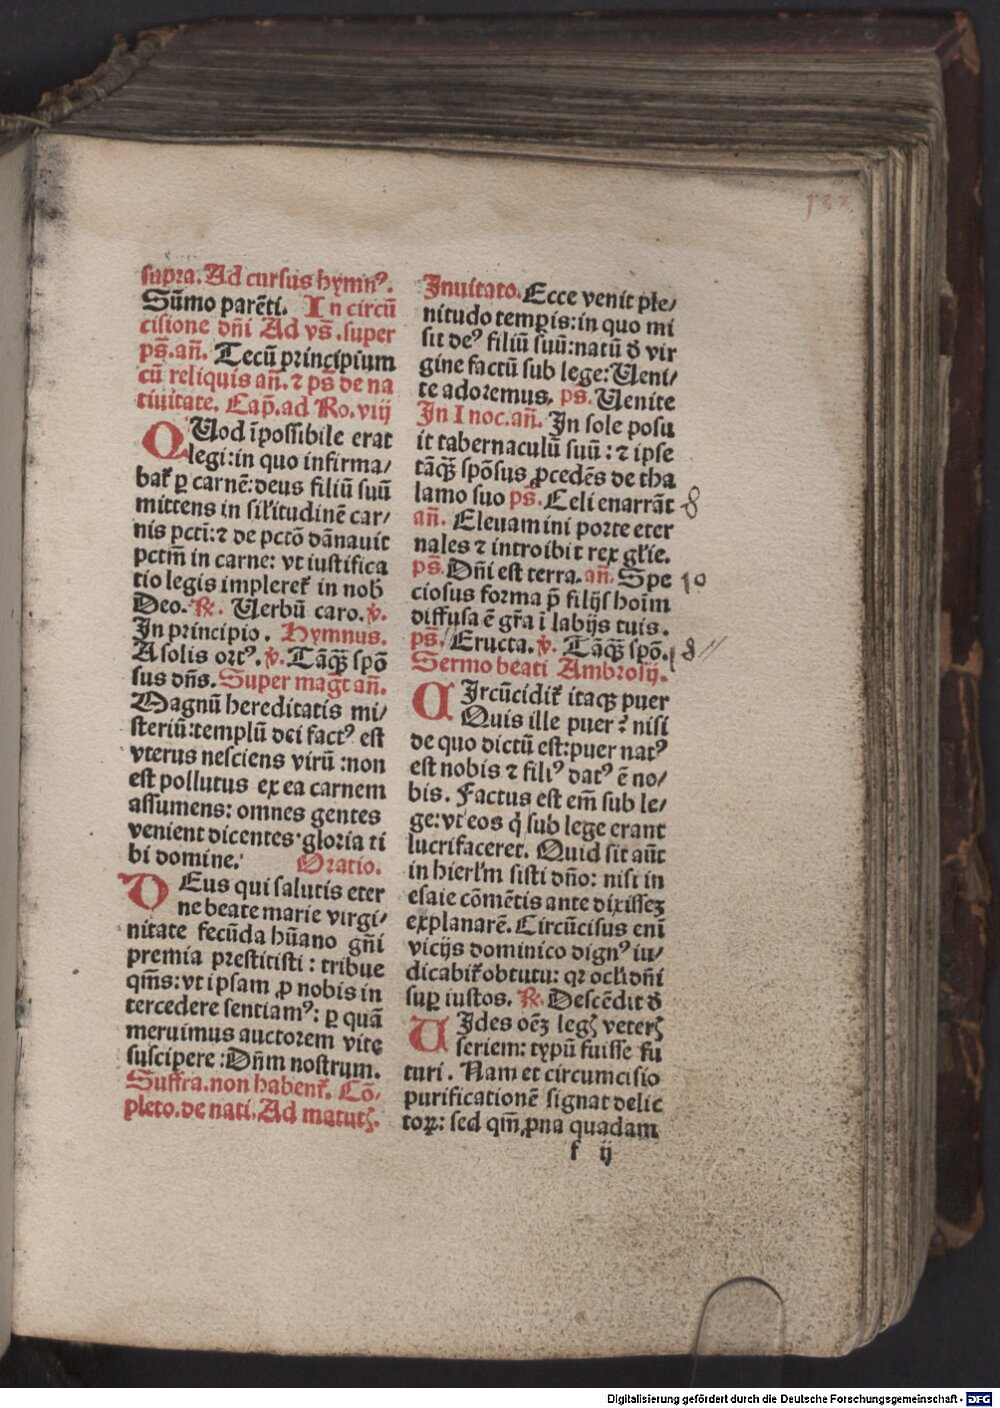 supra. Ad cursus hymnꝰ.
Sūmo parēti. In circū
cisione dn̄i Ad vs̄. super
ps̄. an̄. Tecū principium
cū reliquis an̄. ⁊ ps̄ de na
tiuitate. Cap̄. ad Ro. viij
QUod īpossibile erat
legi: in quo infirma/
bat᷑ ꝑ carnē: deus filiū suū
mittens in sil'itudinē car/
nis pctī: ⁊ de pctō dānauit
pctm̄ in carne: vt iustifica
tio legis impleret᷑ in nob̄
Deo. ℟. Uerbū caro. ℣.
In principio. Hymnus.
A solis ortꝰ. ℣. Tāqꝫ spō
sus dn̄s. Super magt an̄.
Magnū hereditatis mi/
steriū: templū dei factꝰ est
vterus nesciens virū: non
est pollutus ex ea carnem
assumens: omnes gentes
venient dicentes gloria ti
bi domine. Oratio.
DEus qui salutis eter
ne beate marie virgi/
nitate fecūda hūano gn̄i
premia prestitisti: tribue
qm̄s: vt ipsam ꝓ nobis in
tercedere sentiamꝰ: ꝑ quā
meruimus auctorem vite
suscipere: Dn̄m nostrum.
Suffra. non habent᷑. Cō/
pleto. de nati. Ad matutꝭ.
Inuitato. Ecce venit ple/
nitudo temꝑis: in quo mi
sit deꝰ filiū suū: natū đ vir
gine factū sub lege: Ueni/
te adoremus. ps̄. Uenite
In I noc. an̄. In sole posu
it tabernaculū suū: ⁊ ipse
tāqꝫ spōsus ꝓcedēs de tha
lamo suo ps̄. Celi enarrāt 8
an̄. Eleuamini porte eter
nales ⁊ introibit rex gl'ie.
ps̄. Dn̄i est terra. an̄. Spe 10
ciosus forma p̄ filijs hoīm
diffusa ē gr̄a ī labijs tuis.
ps̄. Eructa. ℣. Tāqꝫ spō.
Sermo beati Ambrosij.
CIrcūcidit᷑ itaqꝫ puer
Quis ille puer? nisi
de quo dictū est: puer natꝰ
est nobis ⁊ filiꝰ datꝰ ē no/
bis. Factus est em̄ sub le/
ge: vt eos q̇ sub lege erant
lucrifaceret. Quid sit aūt
in hierl'm sisti dn̄o: nisi in
esaie cōmētis ante dixissez
explanarē. Circūcisus enī
vicijs dominico dignꝰ iu/
dicabit᷑ obtutu: qꝛ ocl'i dn̄i
suꝑ iustos. ℟. Descēdit đ
UIdes oēz legꝭ veterꝭ
seriem: typū fuisse fu
turi. Nam et circumcisio
purificationē signat delic
toꝝ: sed qm̄ ꝓna quadam
f ij